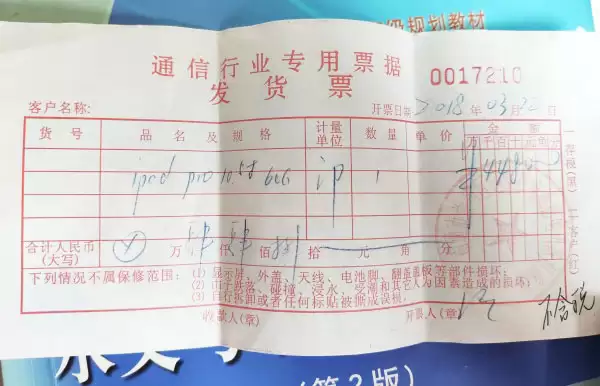 级规划教材
通信行业专用票据
发货票
0017210
客户名称: 开票日期 2018 年 03 月 日
货号 品名及规格 计量单位 数量 单价 金额
万 千 百 十 元 角 分
ipad pro 10.5寸 64G 1
合计人民币(大写) 万 肆 仟 肆 佰 捌 拾 元 角 分
下列情况不属保修范围:
(1) 显示屏、外盖、天线、电池脚、翻盖盖板等部件损坏;
(2) 由于跌落、碰撞、浸水、受潮和其它人为因素造成的损坏;
(3) 自行拆卸或者任何标贴被撕成误视。
收款人(章) 开票人(章)
不含税
水文
(第2版)